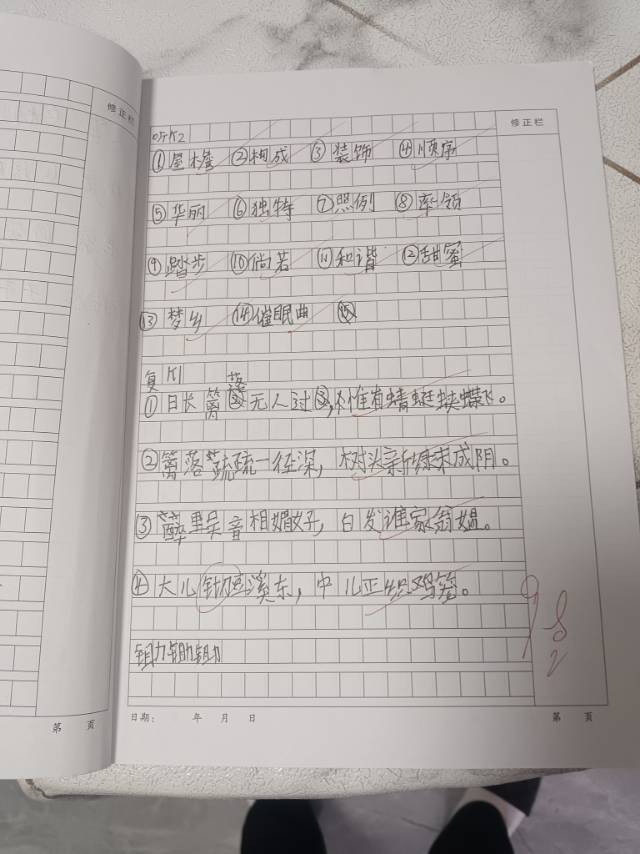 修正栏
修正栏
听K2
①屋檐 ②构成 ③装饰 ④顺序
⑤华丽 ⑥独特 ⑦照例 ⑧率领
⑨踏步 ⑩倘若 ⑪和谐 ⑫甜蜜
⑬梦乡 ⑭催眠曲
复K1
落
①日长篱无人过,惟有蜻蜓蛱蝶飞。
②篱落疏疏一径深,树头新绿未成阴。
③醉里吴音相媚好,白发谁家翁媪。
④大儿锄豆溪东,中儿正织鸡笼。
锄锄锄
98
2
日期: 年 月 日
第 页
第 页